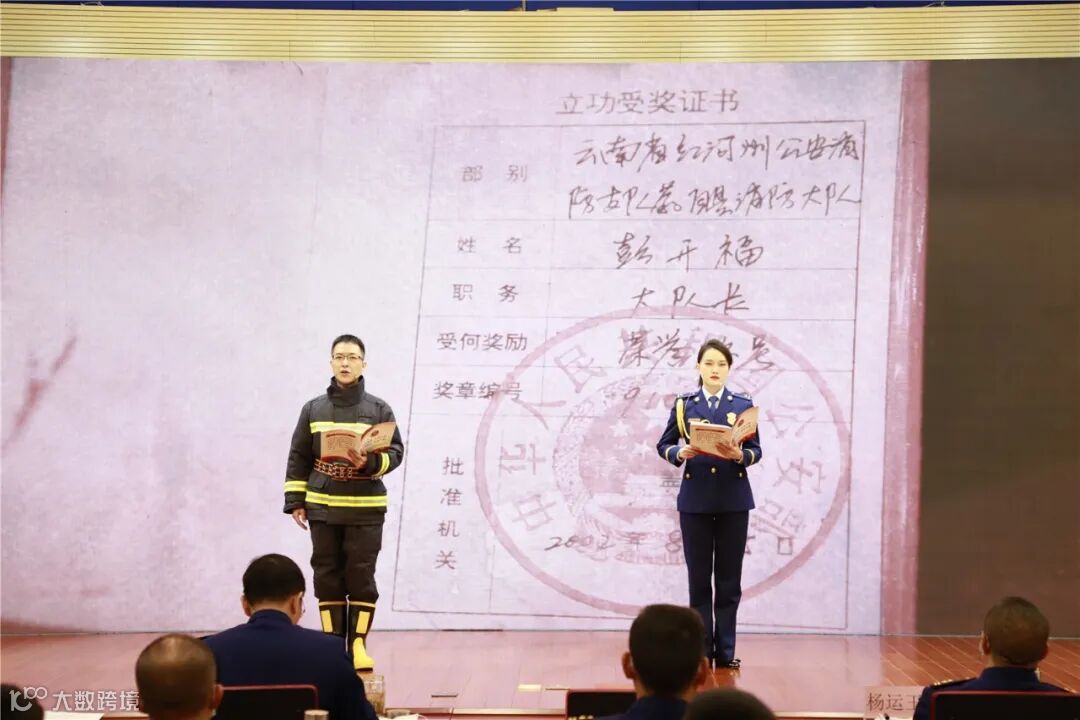 立功受奖证书
部别
云南省红河州公安消
防支队蒙自县消防大队
姓名
彭开福
职务
大队长
受何奖励
奖章编号
批准机关
中华人民共和国公安部
2002年8
大数跨境
杨运王